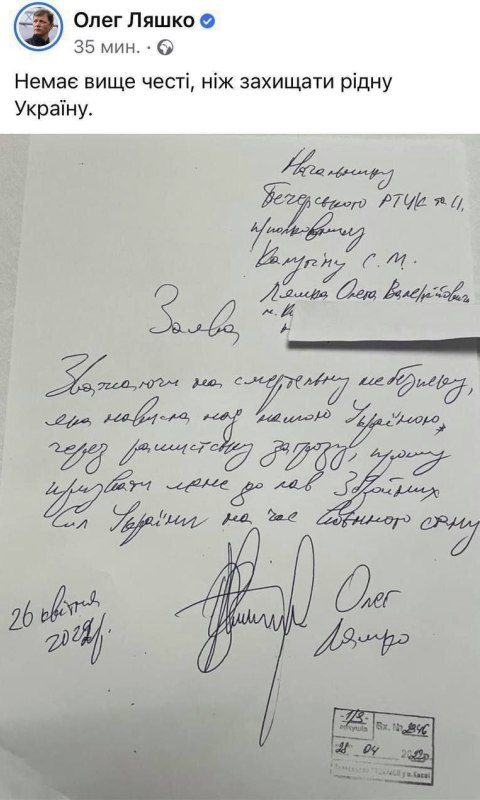 Олег Ляшко
35 мин. ·
Немає вище честі, ніж захищати рідну
Україну.
Начальнику
Печерського РТЦК та СП
підполковнику
С. М.
Ляшка Олега Валерійовича
м.
Заява
Зважаючи на смертельну небезпеку,
яка нависла над нашою Україною,
через рашистську загрозу, прошу
призвати мене до лав Збройних
Сил України на час воєнного стану
26 квітня
2022р.
Олег
Ляшко
1/3
аркушів
Вх. № 2946
28 04 2022р.